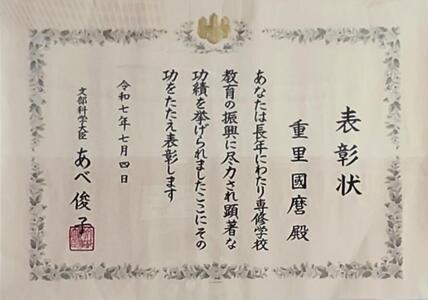 表彰状
重里國麿 殿
あなたは長年にわたり専修学校
教育の振興に尽力され顕著な
功績を挙げられましたここにその
功をたたえ表彰します
令和七年七月四日
文部科学大臣 あべ 俊子